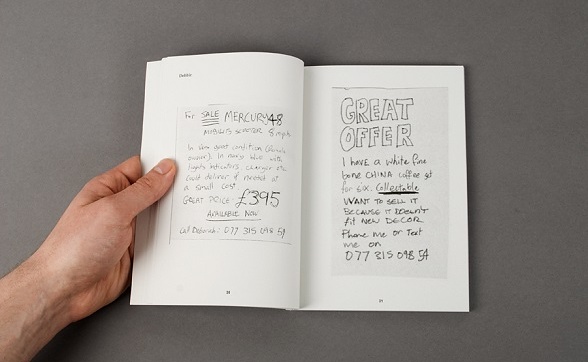 For SALE MERCURY 48
8 mph
In very good condition
owner). In navy blue with
lights indicators, charger etc
Could deliver if needed at
a small cost
GREAT PRICE: £395
AVAILABLE NOW
Call Deborah: 077 315 098 54
20
GREAT
OFFER
I have a white fine
bone CHINA coffee set
for six. Collectable
WANT TO SELL IT
BECAUSE IT DOESN'T
fit NEW DECOR
Phone me or Text
me on
077 315 098 54
21